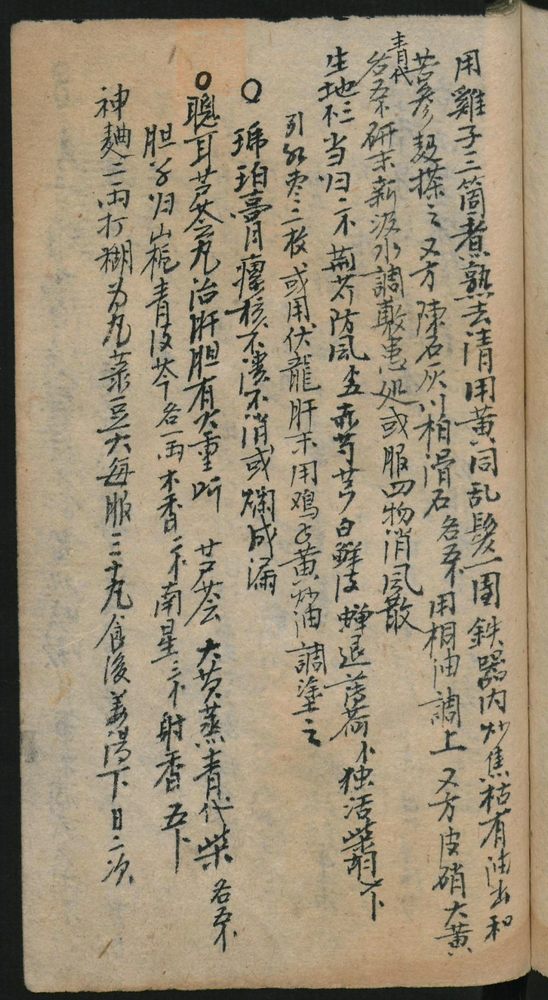 用雞子三箇煮熟去清用黃同乱髮一團鉄器內炒焦枯有油出和
苦參麩搽之 又方陳石灰川柏滑石各五不用桐油調上 又方皮硝大黃
青代
各五不研末新汲水調敷患処或服四物消風散
生地不三当归二不荊芥防風五赤芍芎白鮮皮蟬退薄荷小独活柴胡下
引紅枣二枚或用伏龍肝末用鸡子黃炒油調塗之
○琥珀膏月瘰核不潰不消或爛成漏
○聰耳芦荟丸治肝胆有火重听 芦荟大黃蒸青代柴各五不
胆子归山梔青皮芩各一両木香二不南星三不射香五下
神麯二両打糊为丸菉豆大每服三十丸食後姜湯下日二次